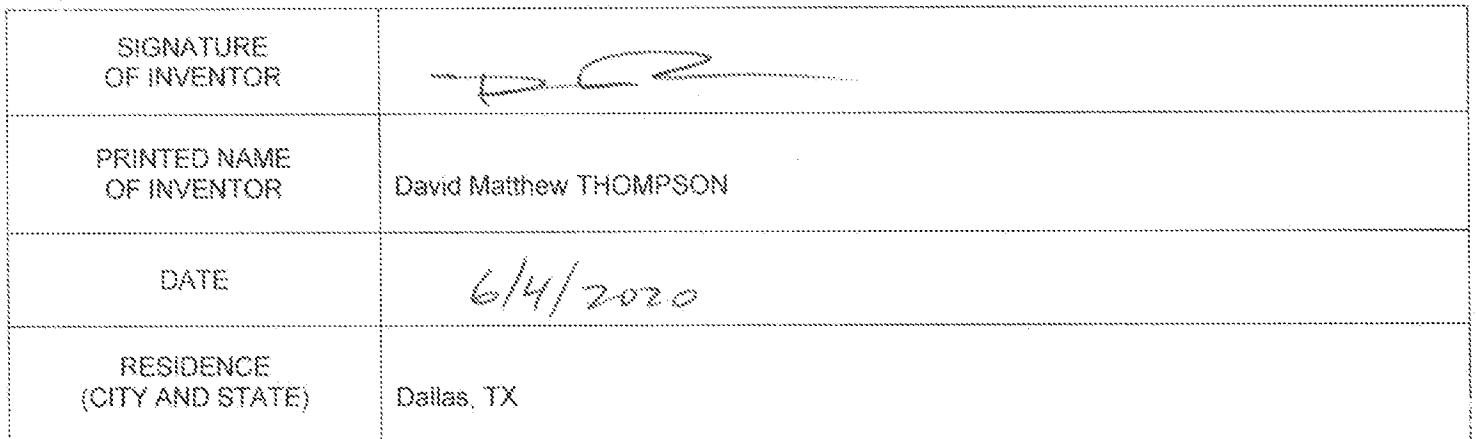 SIGNATURE
OF INVENTOR
PRINTED NAME
OF INVENTOR
David Matthew THOMPSON
DATE
6/4/2020
RESIDENCE
(CITY AND STATE)
Dallas, TX